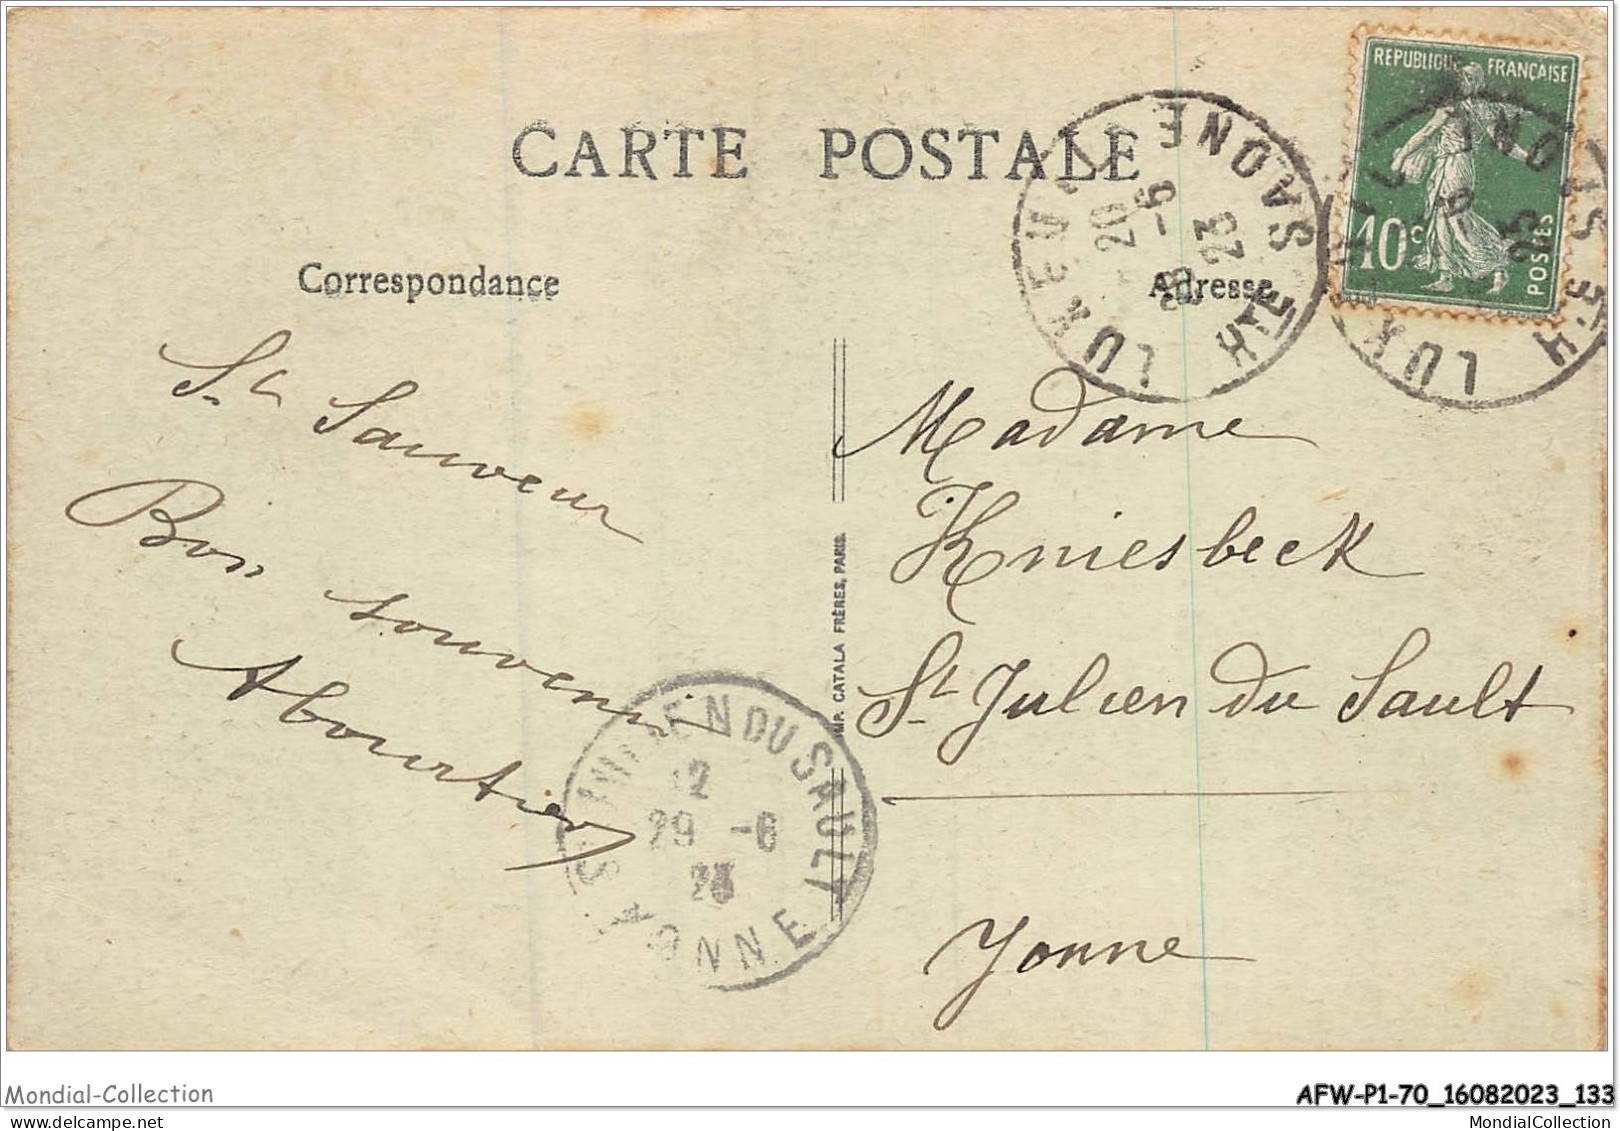 REPUBLIQUE FRANÇAISE
10c
POSTES
CARTE POSTALE
LUXEUIL
HTE SAONE
20
28 -6
23
LUX
HTE SAONE
-6
23
Correspondance
Adresse
St Sauveur
Bon souvenir
Madame
Kniesbeck
St Julien du Sault
Yonne
IMP. CATALA FRÈRES, PARIS.
ST JULIEN DU SAULT
12
29 -6
23
YONNE
Mondial-Collection
AFW-P1-70_16082023_133
MondialCollection.com
MondialCollection.com